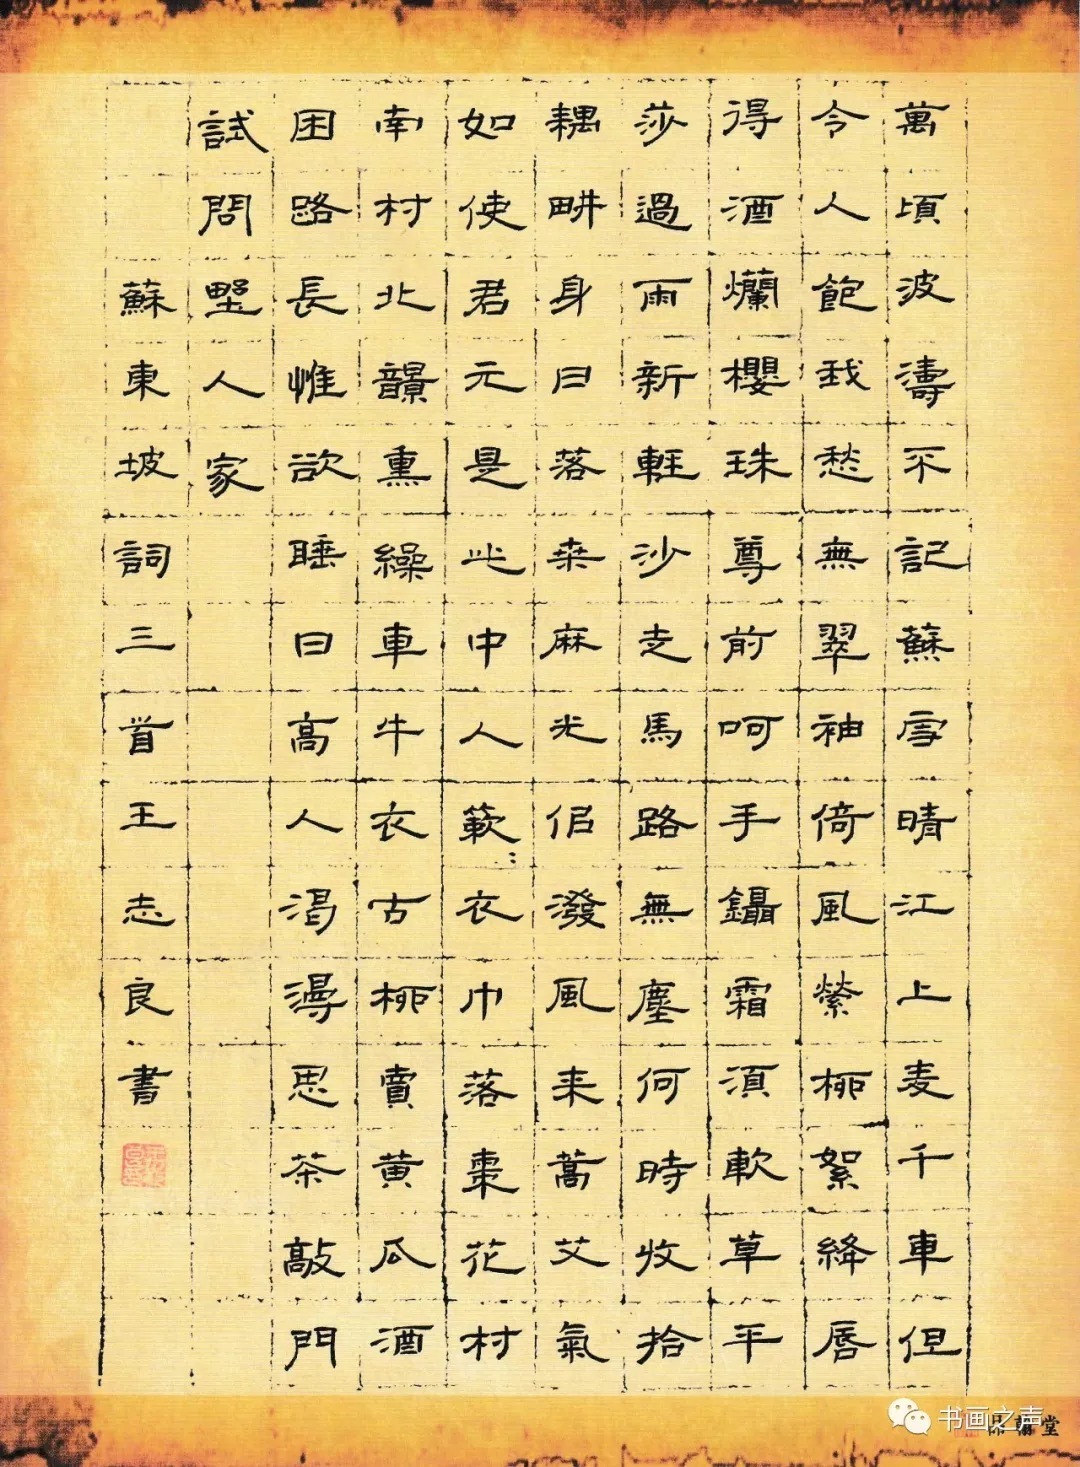 萬頃波濤不記蘇雪晴江上麦千車但
令人飽我愁無翠袖倚風縈柳絮絳唇
得酒爛櫻珠尊前呵手鑷霜須軟草平
莎過雨新輕沙走馬路無塵何時收拾
耦畊身日落桒麻光侣潑風来蒿艾氣
如使君元是此中人蔌〻衣巾落棗花村
南村北韻熏繰車牛衣古柳賣黄瓜酒
困路長惟欲睡日高人渴漫思茶敲門
試問野人家
蘇東坡詞三首王志良書
书画之声
品翰堂